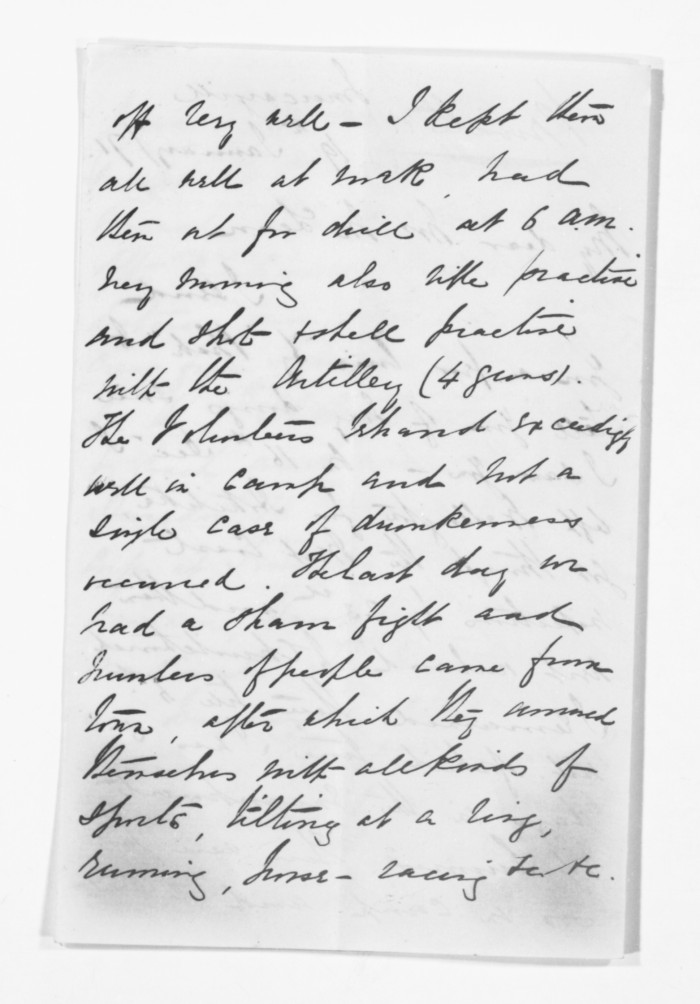 off very well - I kept them
all well at work, had
them out for drill at 6 a.m.
every morning also rifle practise
and shot & shell practise
with the Artillery (4 guns).
The Volunteers behaved exceedingly
well in camp and not a
single case of drunkenness
occurred. The last day we
had a sham fight and
numbers of people came from
town, after which they amused
themselves with all kinds of
sports, tilting at a ring,
running, horse-racing &c &c.